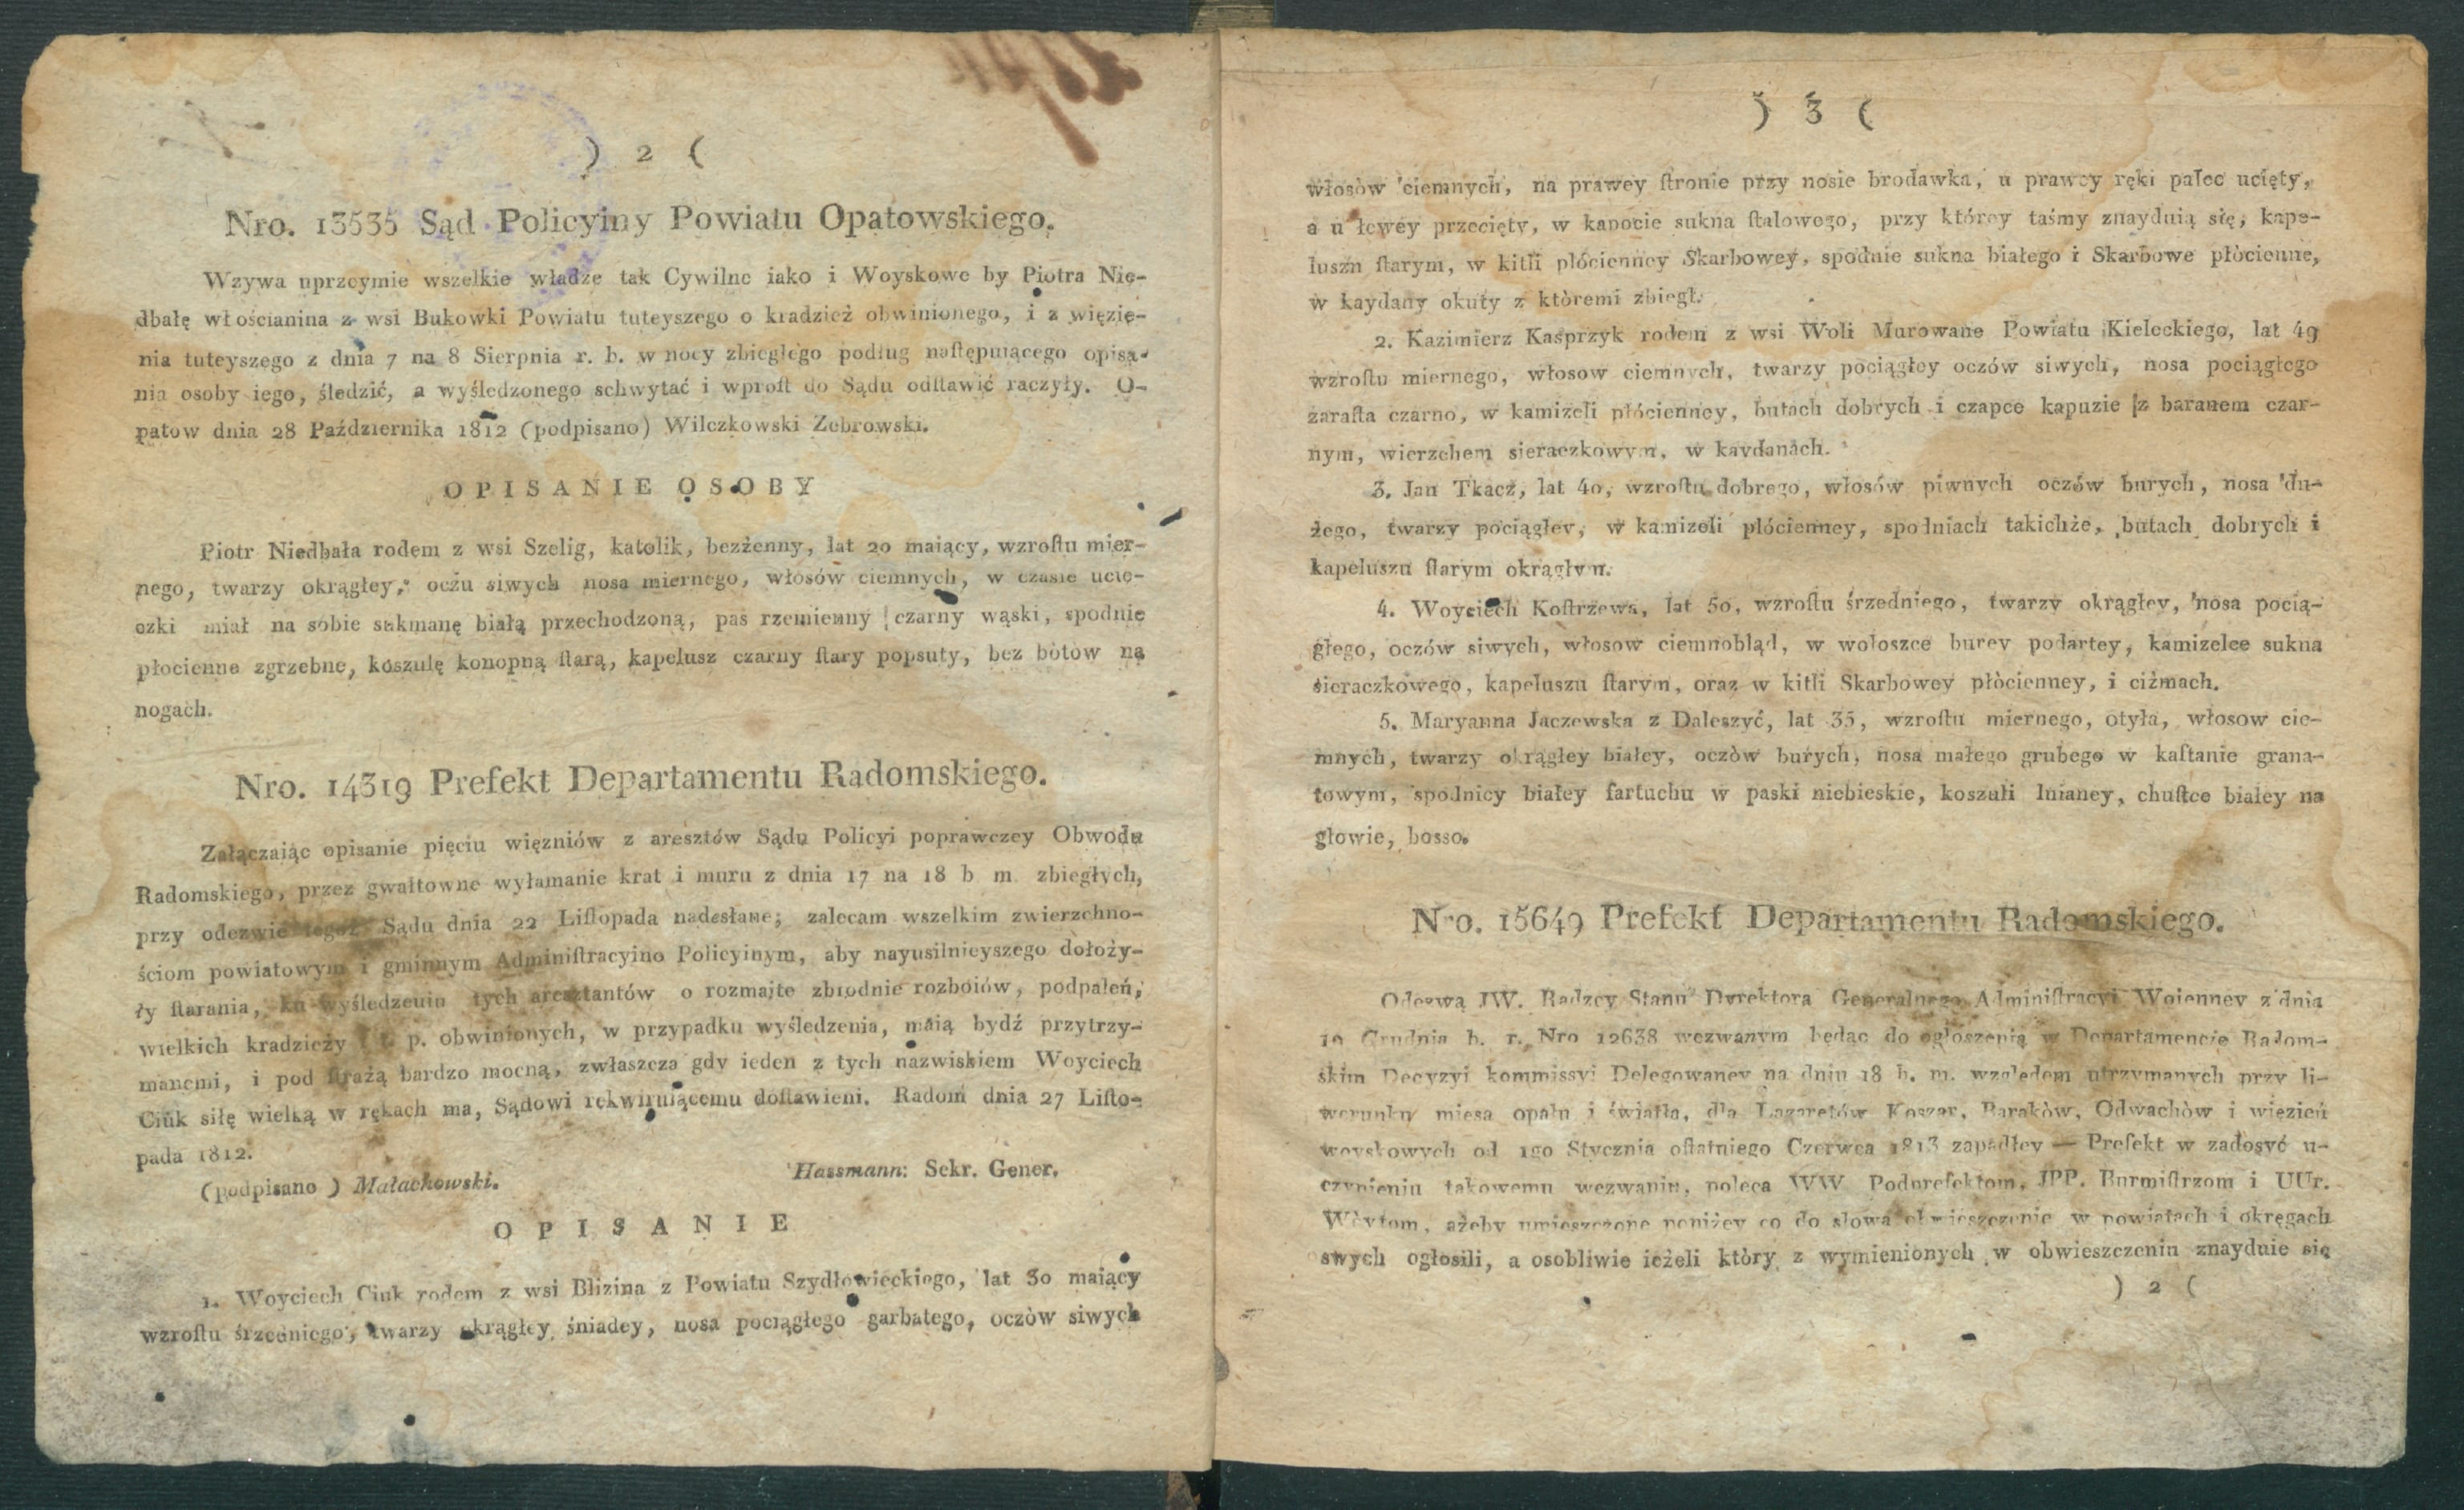 ) 2 (
Nro. 13535 Sąd Policyiny Powiatu Opatowskiego.
Wzywa uprzeymie wszelkie władze tak Cywilne iako i Woyskowe by Piotra Nie-
dbałę włościanina z wsi Bukowki Powiatu tuteyszego o kradzież obwinionego, i z więzie-
nia tuteyszego z dnia 7 na 8 Sierpnia r. b. w nocy zbiegłego podług naſtępuiącego opisa-
nia osoby iego, śledzić, a wyśledzonego schwytać i wproſt do Sądu odſtawić raczyły. O-
patow dnia 28 Października 1812 (podpisano) Wilczkowski Zebrowski.
OPISANIE OSOBY
Piotr Niedbała rodem z wsi Szelig, katolik, bezżenny, lat 20 maiący, wzroſtu mier-
nego, twarzy okrągłey, oczu siwych nosa miernego, włosów ciemnych, w czasie ucie-
czki miał na sobie sukmanę białą przechodzoną, pas rzemienny czarny wąski, spodnie
płocienne zgrzebne, koszulę konopną ſtarą, kapelusz czarny ſtary popsuty, bez bòtow na
nogach.
Nro. 14319 Prefekt Departamentu Radomskiego.
Załączaiąc opisanie pięciu więzniów z aresztów Sądu Policyi poprawczey Obwodu
Radomskiego, przez gwałtowne wyłamanie krat i muru z dnia 17 na 18 b m zbiegłych,
przy odezwie tegoż Sądu dnia 22 Liſtopada nadesłane; zalecam wszelkim zwierzchno-
ściom powiatowym i gminnym Adminiſtracyino Policyinym, aby nayusilnieyszego dołoży-
ły ſtarania, ku wyśledzeuiu tych aresztantów o rozmaite zbrodnie rozboiów, podpaleń,
wielkich kradzieży i t. p. obwinionych, w przypadku wyśledzenia, maią bydź przytrzy-
manemi, i pod ſtrażą bardzo mocną, zwłaszcza gdy ieden z tych nazwiskiem Woyciech
Ciuk siłę wielką w rękach ma, Sądowi rekwiruiącemu doſtawieni. Radom dnia 27 Liſto-
pada 1812.
(podpisano) Małachowski. Hassmann: Sekr. Gener.
OPISANIE
1. Woyciech Ciuk rodem z wsi Błizina z Powiatu Szydłowieckiego, lat 30 maiący
wzroſtu śrzedniego, twarzy okrągłey śniadey, nosa pociągłego garbatego, oczòw siwych
) 3 (
włosòw ciemnych, na prawey ſtronie przy nosie brodawka, u prawey ręki palec ucięty,
a u lewey przecięty, w kapocie sukna ſtalowego, przy którey taśmy znayduią się, kape-
luszu ſtarym, w kitli plócienney Skarbowey, spodnie sukna białego i Skarbowe płòcienne,
w kaydany okuty z któremi zbiegł.
2. Kazimierz Kasprzyk rodem z wsi Woli Murowane Powiatu Kieleckiego, lat 49
wzroſtu miernego, włosow ciemnych, twarzy pociągłey oczów siwych, nosa pociągłego
zaraſta czarno, w kamizeli płócienney, butach dobrych i czapce kapuzie z baranem czar-
nym, wierzchem sieraczkowym, w kaydanach.
3. Jan Tkacz, lat 40, wzroſtu dobrego, włosów piwnych oczów burych, nosa du-
żego, twarzy pociągłey, w kamizeli plócienney, spodniach takichże, butach dobrych i
kapeluszu ſtarym okrągłym.
4. Woyciech Koſtrzewa, lat 50, wzroſtu śrzedniego, twarzy okrągłey, nosa pocią-
głego, oczów siwych, włosow ciemnobląd, w wołoszce burey podartey, kamizelce sukna
sieraczkowego, kapeluszu ſtarym, oraz w kitli Skarbowey płòcienney, i ciżmach.
5. Maryanna Jaczewska z Daleszyć, lat 35, wzroſtu miernego, otyła, włosow cie-
mnych, twarzy okrągłey białey, oczòw burych, nosa małego grubego w kaftanie grana-
towym, spodnicy białey fartuchu w paski niebieskie, koszuli lnianey, chuſtce białey na
głowie, bosso.
Nro. 15649 Prefekt Departamentu Radomskiego.
Odezwą JW. Radzcy Stanu Dyrektora Generalnego Adminiſtracyi Woienney z dnia
10 Grudnia b. r. Nro 12638 wezwanym będąc do ogłoszenia w Departamencie Radom-
skim Decyzyi kommissyi Delegowaney na dniu 18 b. m. względem utrzymanych przy li-
werunku miesa opału i światła, dla Lazaretów Koszar, Barakòw, Odwachòw i więzień
woyskowych od 1go Stycznia oſtatniego Czerwca 1813 zapadłey — Prefekt w zadosyć u-
czynieniu takowemu wezwaniu, poleca WW Podprefektom, JPP. Burmiſtrzom i UUr.
Wòytom, ażeby umieszczone poniżey co do słowa obwieszczenie w powiatach i okręgach
swych ogłosili, a osobliwie ieżeli który z wymienionych w obwieszczeniu znayduie się
) 2 (